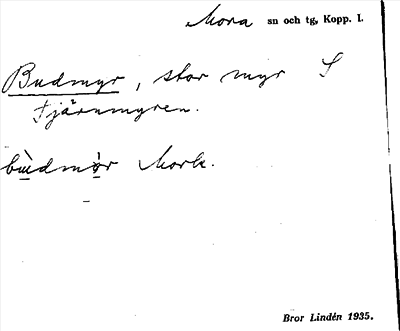 Mora sn och tg, Kopp. l.
Budmyr, stor myr S
Tjärnmyren.
bùdmỳr Mork.
Bror Lindén 1935.